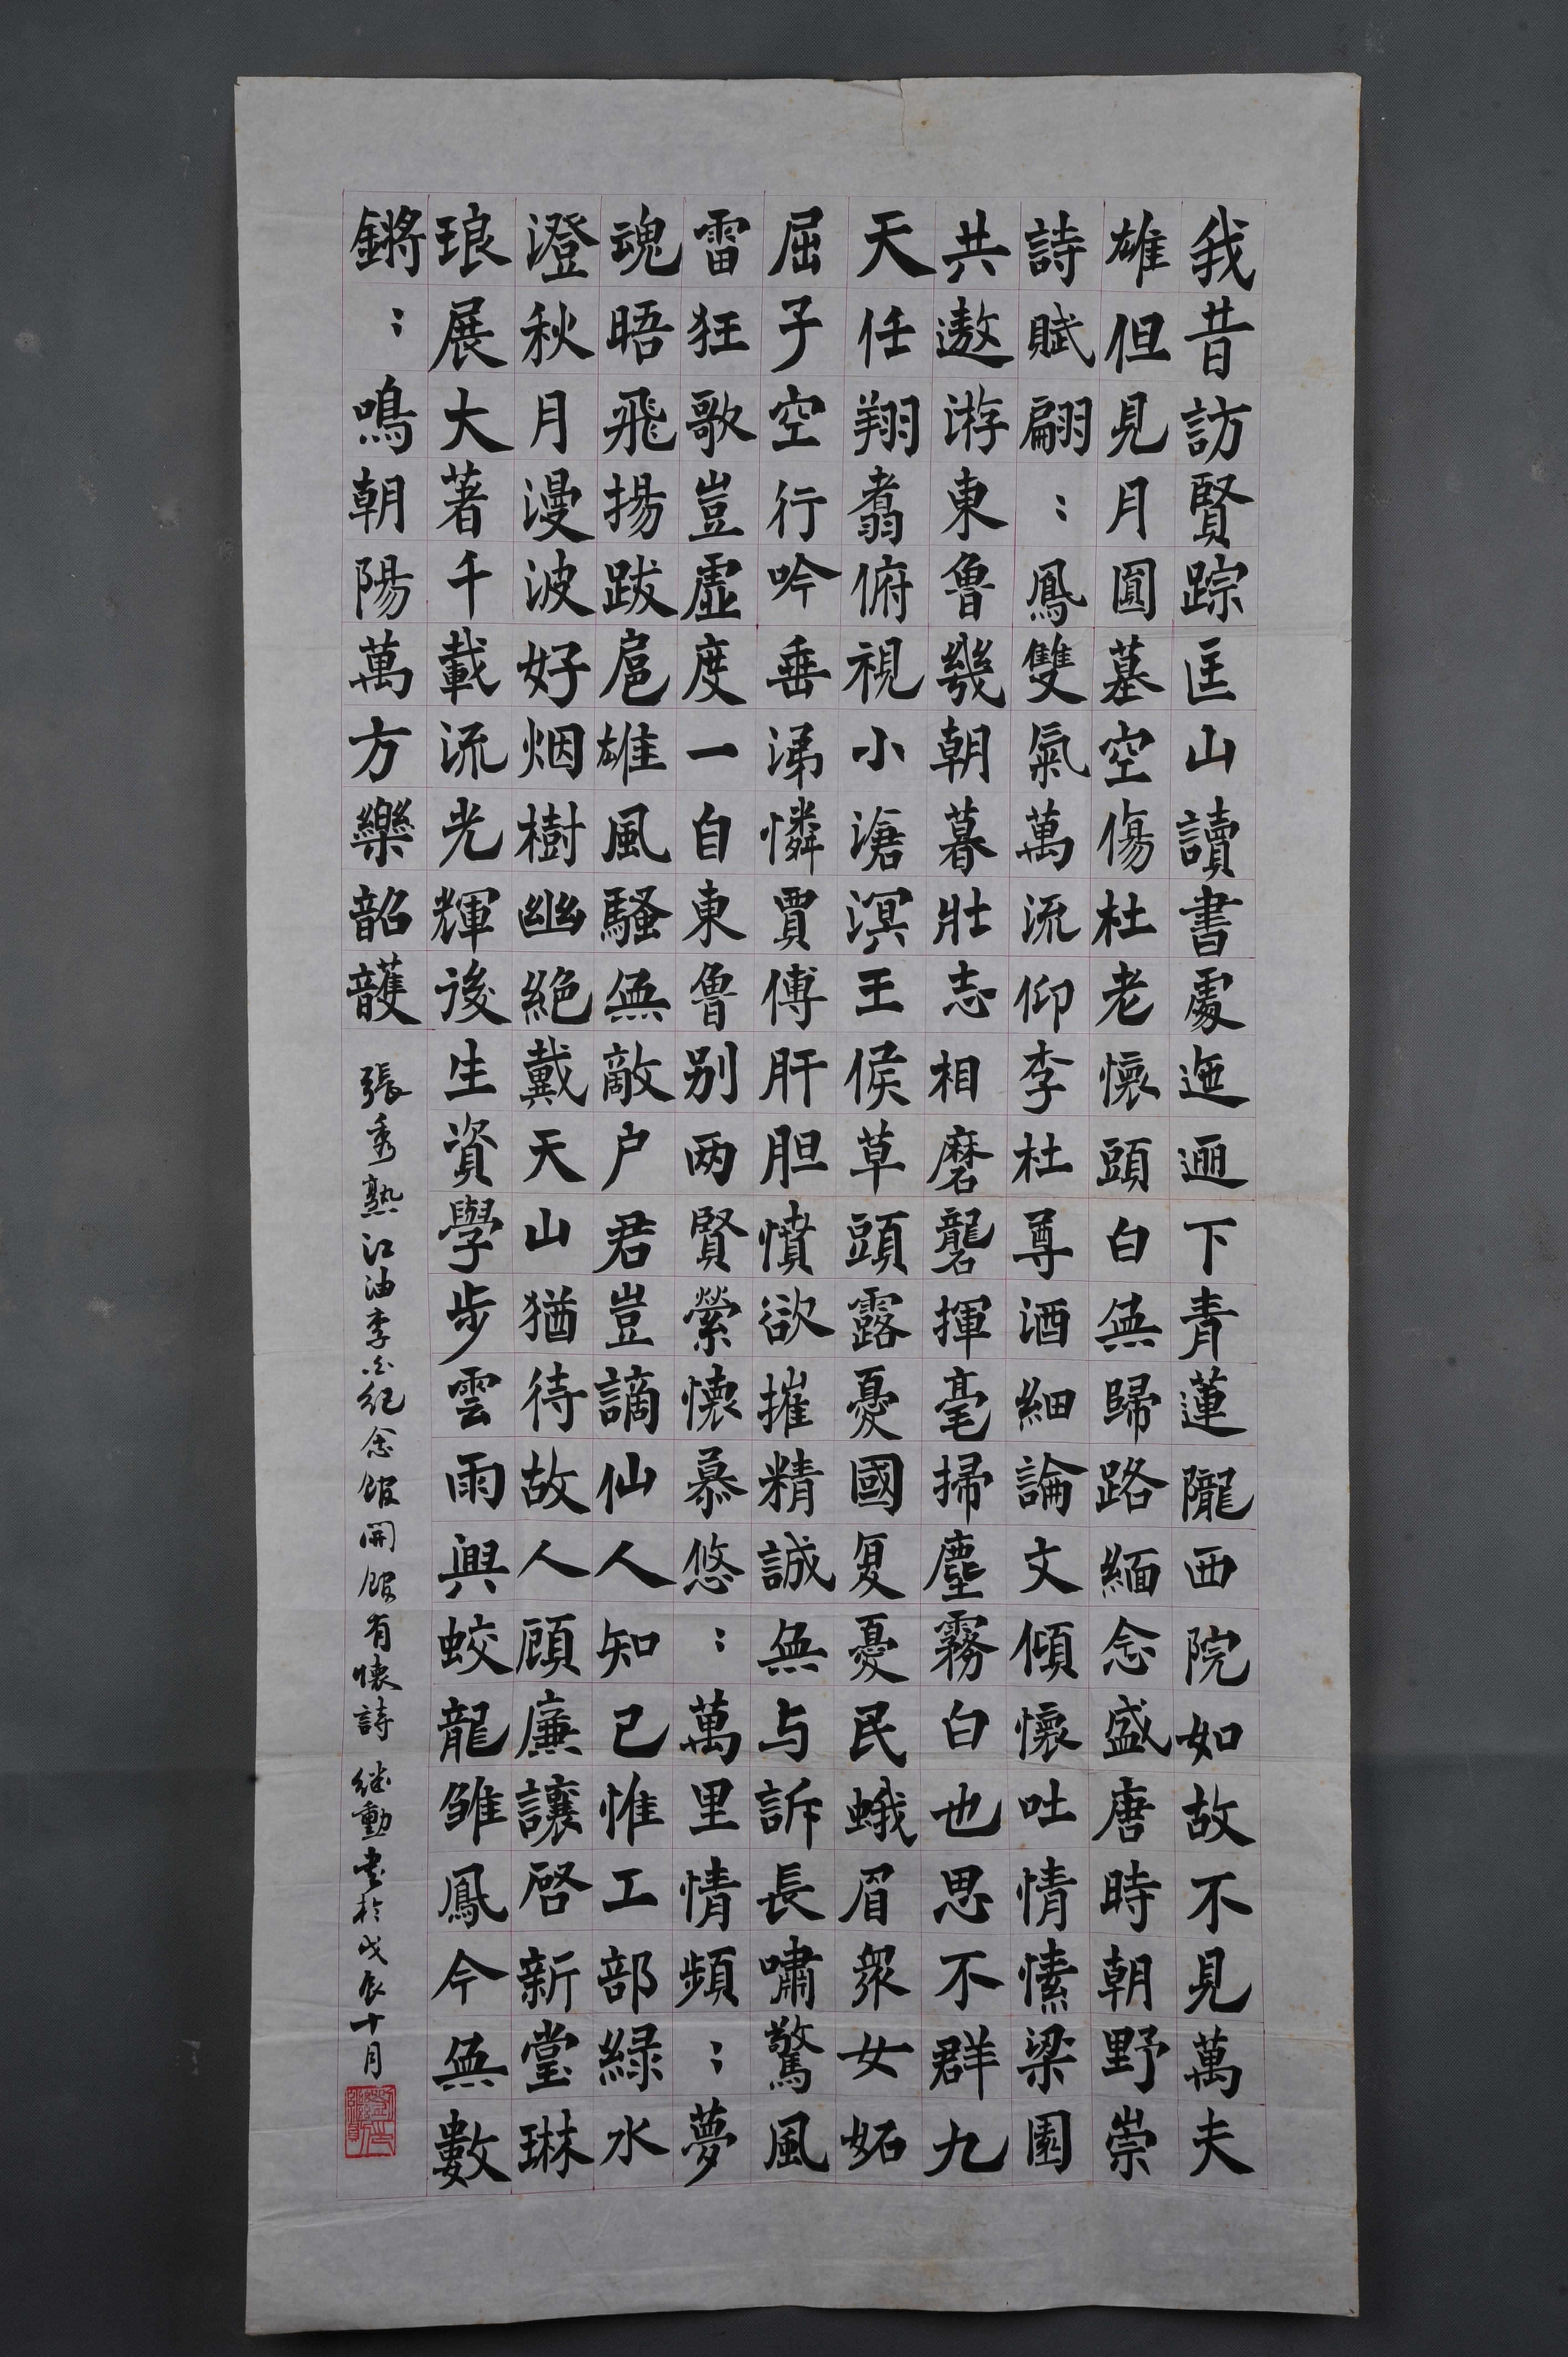 我昔訪賢踪匡山讀書處迤逦下青蓮隴西院如故不見萬夫
雄但見月圓墓空傷杜老懷頭白無歸路緬念盛唐時朝野崇
詩賦翩：鳳雙氣萬流仰李杜尊酒細論文傾懷吐情愫梁園
共遨游東魯幾朝暮壯志相磨礱揮毫掃塵霧白也思不群九
天任翔翥俯視小滄溟王侯草頭露憂國复憂民蛾眉衆女妬
屈子空行吟垂涕憐賈傅肝胆憤欲摧精誠無与訴長嘯驚風
雷狂歌豈虛度一自東魯别两賢縈懷慕悠：萬里情頻：夢
魂晤飛揚跋扈雄風騷無敵户君豈謫仙人知己惟工部緑水
澄秋月漫波好烟樹幽絕戴天山猶待故人顧廉讓啓新堂琳
琅展大著千載流光輝後生資學步雲雨興蛟龍雏鳳今無數
鏘：鳴朝陽萬方樂韶頀
張秀熟江油李白紀念館開館有懷詩 继勳書於戊辰十月